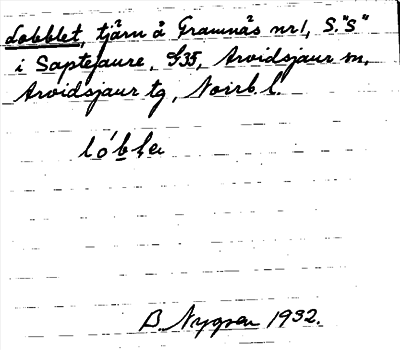 Lobblet, tjärn å Gramnäs nr 1, S. "S"
i Saptejaure, S35, Arvidsjaur sn,
Arvidsjaur tg, Norrb. l.
lóbla
B. Nygren 1932.